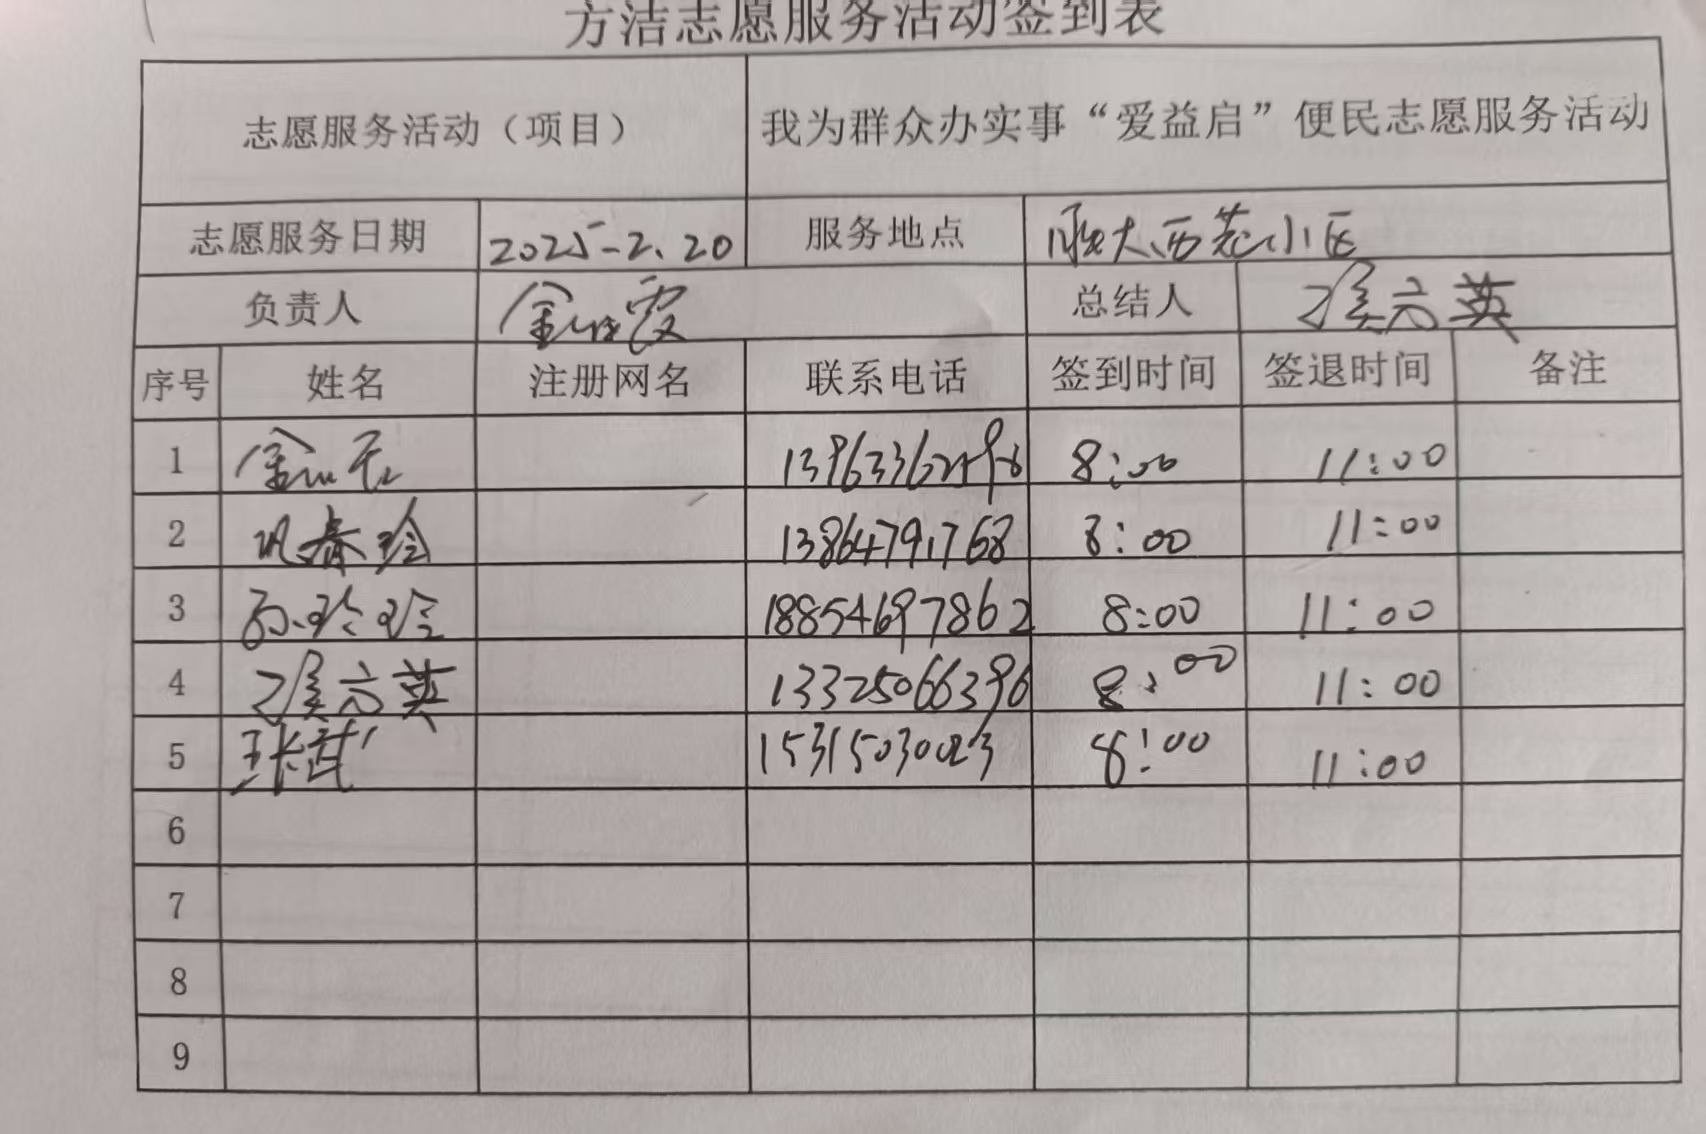 方洁志愿服务活动签到表
志愿服务活动（项目） 我为群众办实事“爱益启”便民志愿服务活动
志愿服务日期 2025-2.20 服务地点 大西苑小区
负责人 金 霞 总结人 侯六英
序号 姓名 注册网名 联系电话 签到时间 签退时间 备注
1 金 8:00 11:00
2 巩春玲 13864791768 8:00 11:00
3 孙玲玲 18854697862 8:00 11:00
4 侯六英 13325066396 8:00 11:00
5 15315030023 8:00 11:00
6
7
8
9